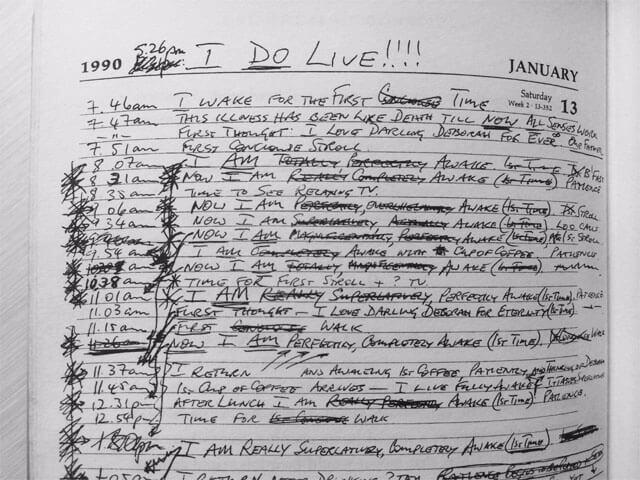 5.26pm I DO LIVE!!!!
1990 JANUARY
Saturday 13
Week 2 · 13-352
7.46am I WAKE FOR THE FIRST CONCIOUS TIME
7.47am THIS ILLNESS HAS BEEN LIKE DEATH TILL NOW ALL SENSES WORK
-"- FIRST THOUGHT: I LOVE DARLING DEBORAH FOR EVER
7.51am FIRST CONCIOUS STROLL.
8.07am I AM TOTALLY PERFECTLY AWAKE 1st TIME
8.31am NOW I AM REALLY COMPLETELY AWAKE (1st TIME) PATIENCE
8.35am TIME TO SEE RELAXING TV.
9.06am NOW I AM PERFECTLY, OVERWHELMINGLY AWAKE (1st TIME). STROLL
9.34am NOW I AM SUPERLATIVELY, ACTUALLY AWAKE (1st TIME) LOO CALL
NOW I AM MAGNIFICENTLY, PERFECTLY AWAKE (1st TIME) 1st STROLL
9.54am I AM COMPLETELY AWAKE WITH CUP OF COFFEE. PATIENCE
NOW I AM TOTALLY, AWAKE (1st TIME)
10.38am TIME FOR FIRST STROLL + ? TV.
11.01am I AM REALLY SUPERLATIVELY, PERFECTLY AWAKE (1st TIME) PATIENCE
11.03am FIRST THOUGHT – I LOVE DARLING DEBORAH FOR ETERNITY (1st TIME).
11.15am FIRST CONCIOUS WALK
11.26am NOW I AM PERFECTLY, COMPLETELY AWAKE (1st TIME). WALK
11.37am I RETURN AND AWAITING 1st COFFEE PATIENTLY AND THINKING OF DEBORAH
11.45am 1st CUP OF COFFEE ARRIVES – I LIVE FULLY AWAKE
12.31pm AFTER LUNCH I AM REALLY PERFECTLY AWAKE (1st TIME) PATIENCE.
12.54pm TIME FOR 1st CONCIOUS WALK
I AM REALLY SUPERLATIVELY, COMPLETELY AWAKE (1st TIME)
I RETURN